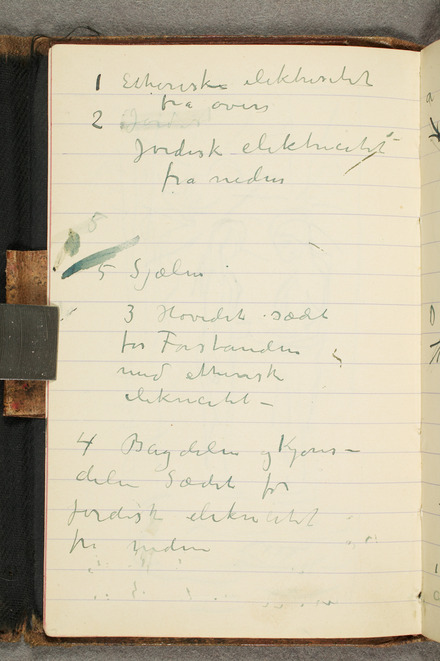 1 Etherisk elektricitet
fra oven
2
Jordisk elektricitet -
fra neden
5
5 Sjælen
3 Hovedet sædet
for Forstanden
med etherisk
elekricitet -
4 Bagdelen og Kjøns -
delen Sædet for
Jordisk elekricitet
fra neden